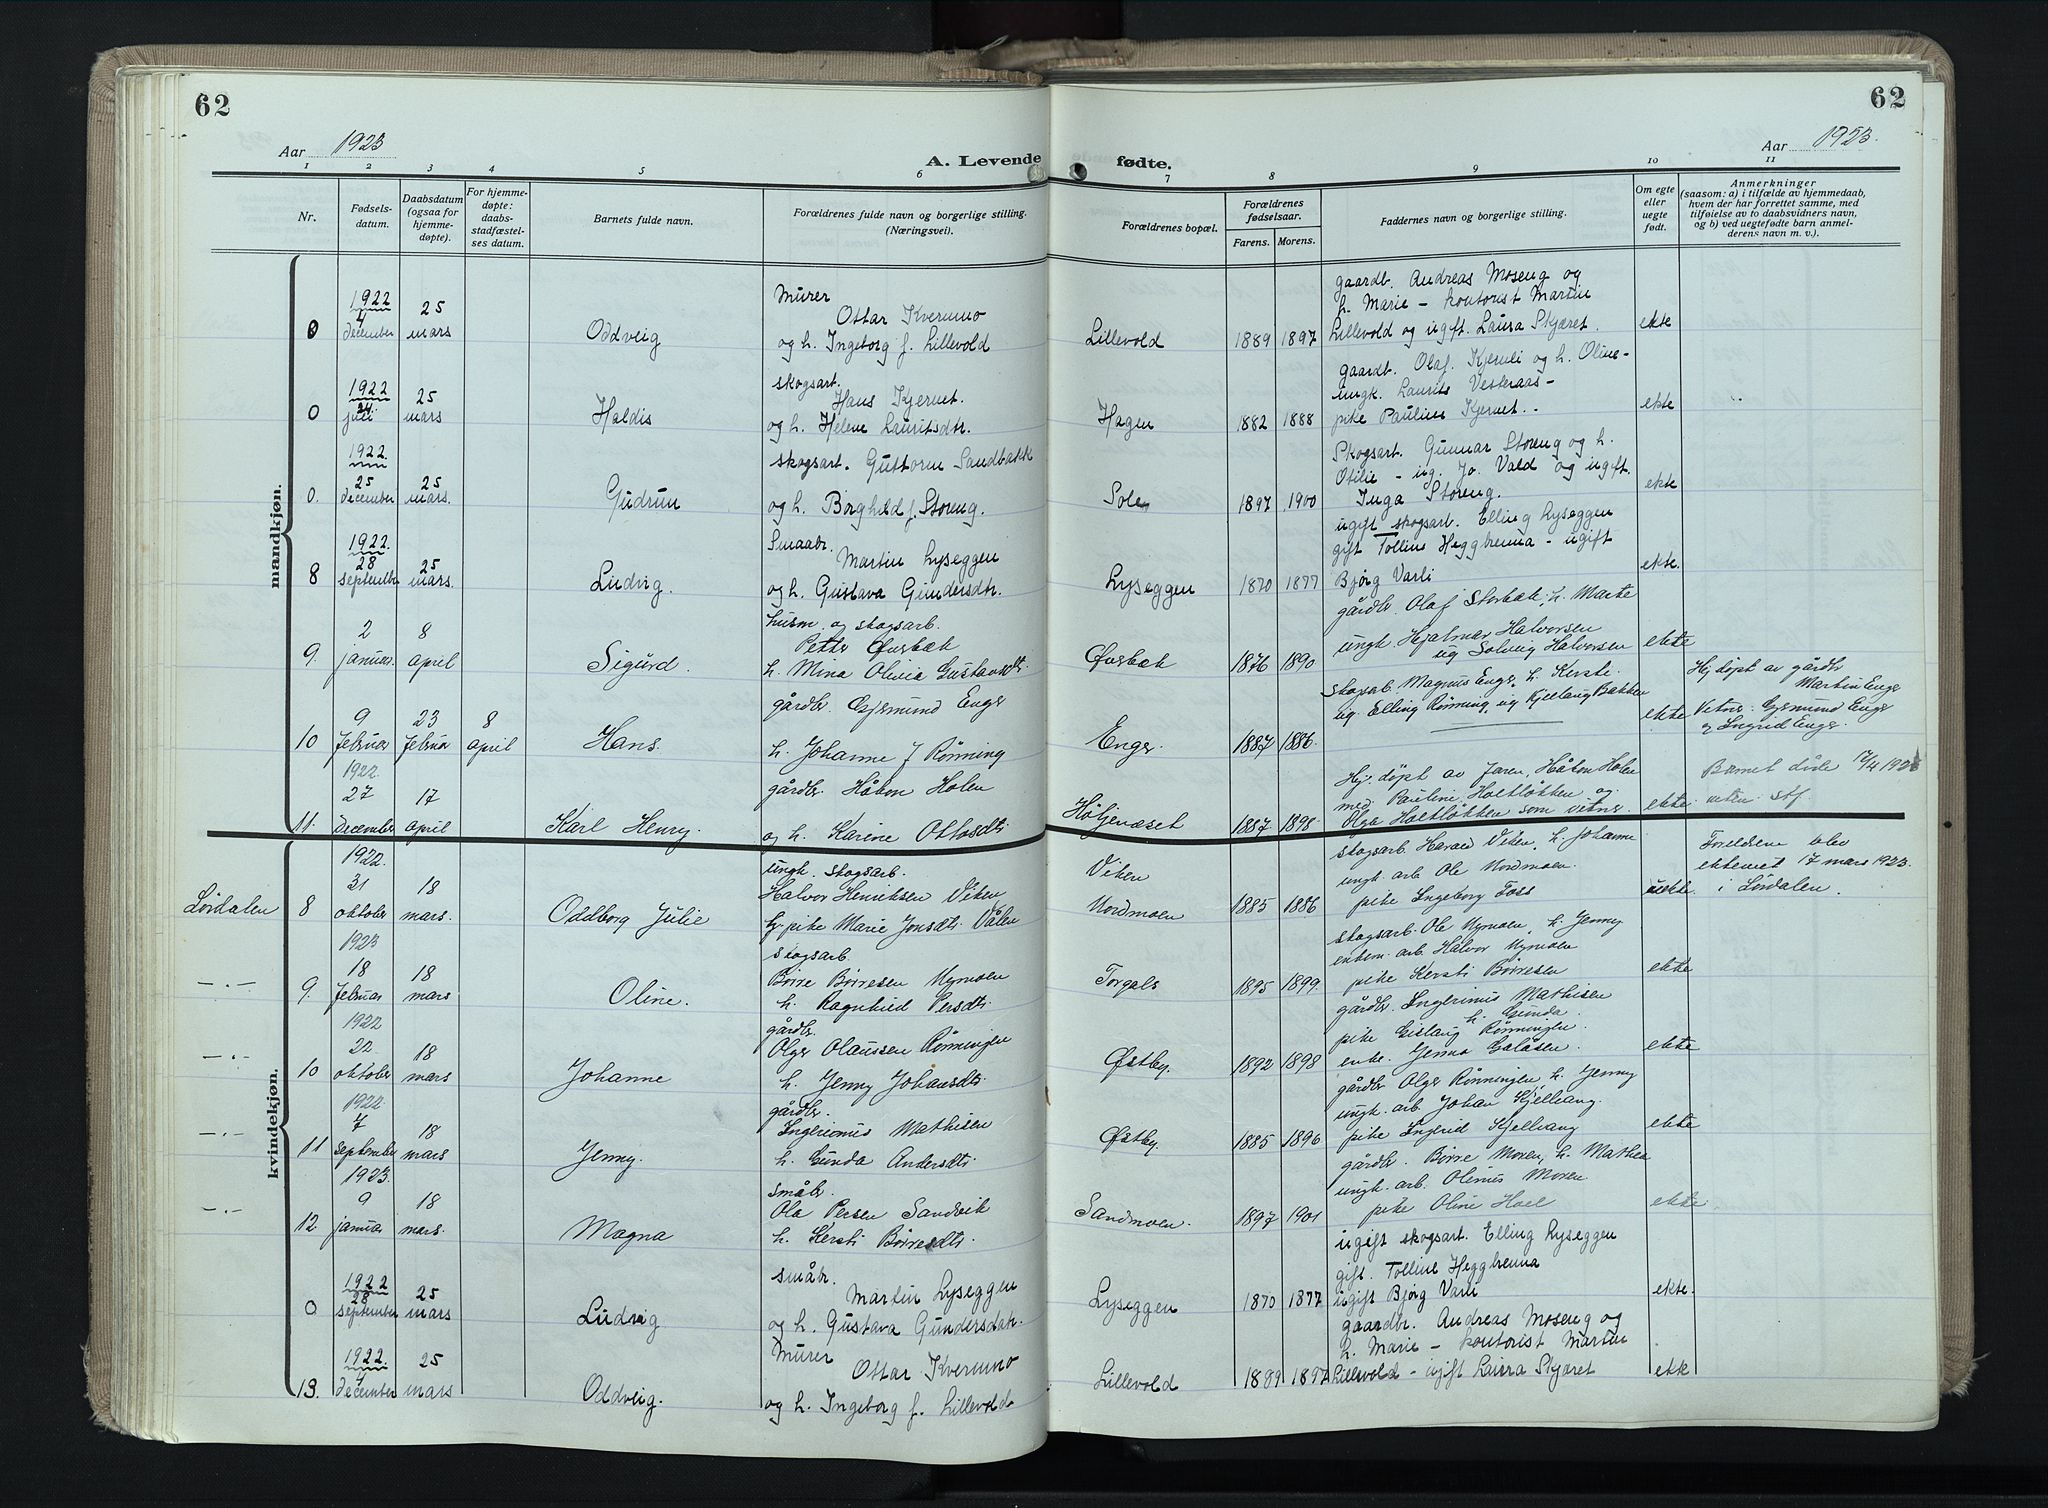 62
62
Aar 1923
Aar 1923.
A. Levende fødte.
1 2 3 4 5 6 7 8 9 10 11
Nr.
Fødsels-
datum.
Daabsdatum
(ogsaa for
hjemme-
døpte).
For hjemme-
døpte:
daabs-
stadfæstel-
ses datum.
Barnets fulde navn.
Forældrenes fulde navn og borgerlige stilling.
(Næringsvei).
Forældrenes bopæl.
Forældrenes
fødselsaar.
Farens. Morens.
Faddernes navn og borgerlige stilling.
Om egte
eller
uegte
født.
Anmerkninger
(saasom: a) i tilfælde av hjemmedaab,
hvem der har forrettet samme, med
tilføielse av to daabsvidners navn,
og b) ved uegtefødte barn anmel-
derens navn m. v.).
mandkjøn.
0 1922 4 december 25 mars
Oddveig
Murer
Ottar Kvernmo
og h. Ingeborg f. Lillevold
Lillevold 1889 1897
gaardb. Andreas Moseng og
h. Marie - kontorist Martin
Lillevold og ugift. Laura Skjæret.
ekte
0 1922 24. juli 25 mars
Haldis
skogsarb.
Hans Kjernet.
og h. Helene Lauritsdtr.
Hagen 1882 1888
gaardb. Olaf. Kjernli og h. Oline-
ungk. Laurits Vesteraas-
pike Pauline Kjernet.
ekte
0. 1922. 25 december 25 mars.
Gudrun
skogsart. Guttorm Sandbakk
og h. Borghild f. Storeng.
Sole 1897 1900
Skogsart. Gunnar Storeng og h.
Otilie - ug. Jo. Vald og ugift.
Inga Storeng.
ekte
8 1922. 28 september 25 mars.
Ludvig.
Smaabr.
Martin Lyseggen
og h. Gustava Gundersdtr.
Lyseggen 1870 1877
ugift skogsarb. Elling Lyseggen
gift Tolline Heggbrenna - ugift
Bjørg Varli
ekte.
9. 2 januar. 8 april
Sigurd.
husm. og skogsarb.
Petter Øvrbæk
h. Mina Olivia Gustavsdtr.
Øvrbæk 1876 1890
gårdbr. Olaf Storbæk, h. Marte
ungk. Hjalmar Halvorsen
ug Solveig Halvorsen
ekte
10 9 februar 23 februar 8 april
Hans.
gårdbr. Gjermund Enger
h. Johanne f Rønning
Enger. 1887 1886.
skogsarb. Magnus Enger, h. Kersti.
ug. Elling Rønning, ug Kjellaug Bakken
ekte
Hj. døpt av gårdbr
Martin Enger
Vitner: Gjermund Enger
og Ingrid Enger.
11. 1922 27 december 17 april
Karl Henry.
gårdbr. Håkon Holen
og h. Karine Ottosdtr
Høljenæset 1887 1898.
Hj. døpt av faren, Håkon Holen
med Pauline Holtløkken og
Olga Holtløkken som vitner.
ekte.
Barnet døde 17/4 1923
uten stf.
kvindekjøn.
Lørdalen 8 1922. 31 oktober 18 mars.
Oddborg Julie
ungk. skogsarb.
Halvor Henriksen Viken
og pike Marie Jonsdtr. Vålen
Viken
Nordmoen 1885 1886
skogsarb. Harald Viken, h. Johanne
ungk. arb Ole Nordmoen.
pike Ingeborg Foss
uekte
Foreldrene blev
ekteviet 17 mars 1923.
i Lørdalen.
-"- 9. 1923 18 februar 18 mars
Oline.
skogsarb.
Børre Børresen Nymoen
h. Ragnhild Persdtr.
Torgals 1895 1899.
skogsarb. Ole Nymoen, h. Jenny
enkem. arb. Halvor Nymoen
pike Kersti Børresen
ekte
-"- 10 1922 22. oktober 18 mars
Johanne
gårdbr.
Olger Olaussen Rønningen
h. Jenny Johansdtr.
Østby. 1892 1898
gårdbr. Ingerinus Mathisen
h. Gunda.
pike Gislaug Rønningen.
enke. Jenna Galåsen.
ekte
-"- 11 1922 7 september 18 mars
Jenny.
gårdbr.
Ingerinus Mathisen
h. Gunda Andersdtr.
Østby. 1885 1896
gårdbr Olger Rønningen, h. Jenny
ungk. arb. Johan Kjellvang.
pike Ingrid Kjellvang
ekte
-"- 12. 1923. 9 januar 18 mars.
Magna
småbr.
Ola Persen Sandvik
h. Kersti Børresdtr.
Sandmoen. 1897 1901
gårdbr. Børre Moren, h. Mathea
ungk. arb. Olinus Moren
pike Oline Hoel
ekte
0 1922 28 september 25 mars
Ludvig
småbr.
Martin Lyseggen
og h. Gustava Gundersdatr.
Lyseggen 1870 1877
ugift skogsart. Elling Lyseggen
gift. Tolline Heggbrenna
ugift Bjørg Varli
ekte.
13. 1922. 4 december 25 mars
Oddveig.
Murer
Ottar Kvernmo
og h. Ingeborg f. Lillevold
Lillevold 1889 1897
gaardbr. Andreas Moseng og
h. Marie - kontorist Martin
Lillevold - ugift Laura Skjæret
ekte